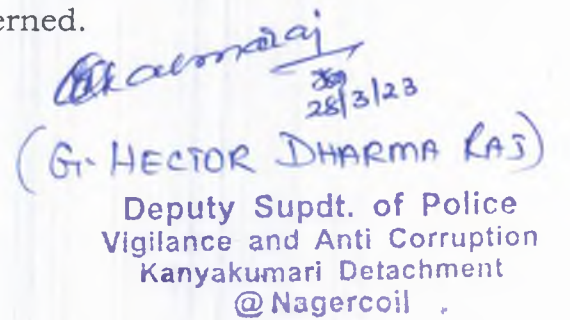 erned.
Dharmaraj
28/3/23
(G. HECTOR DHARMA RAJ)
Deputy Supdt. of Police
Vigilance and Anti Corruption
Kanyakumari Detachment
@ Nagercoil